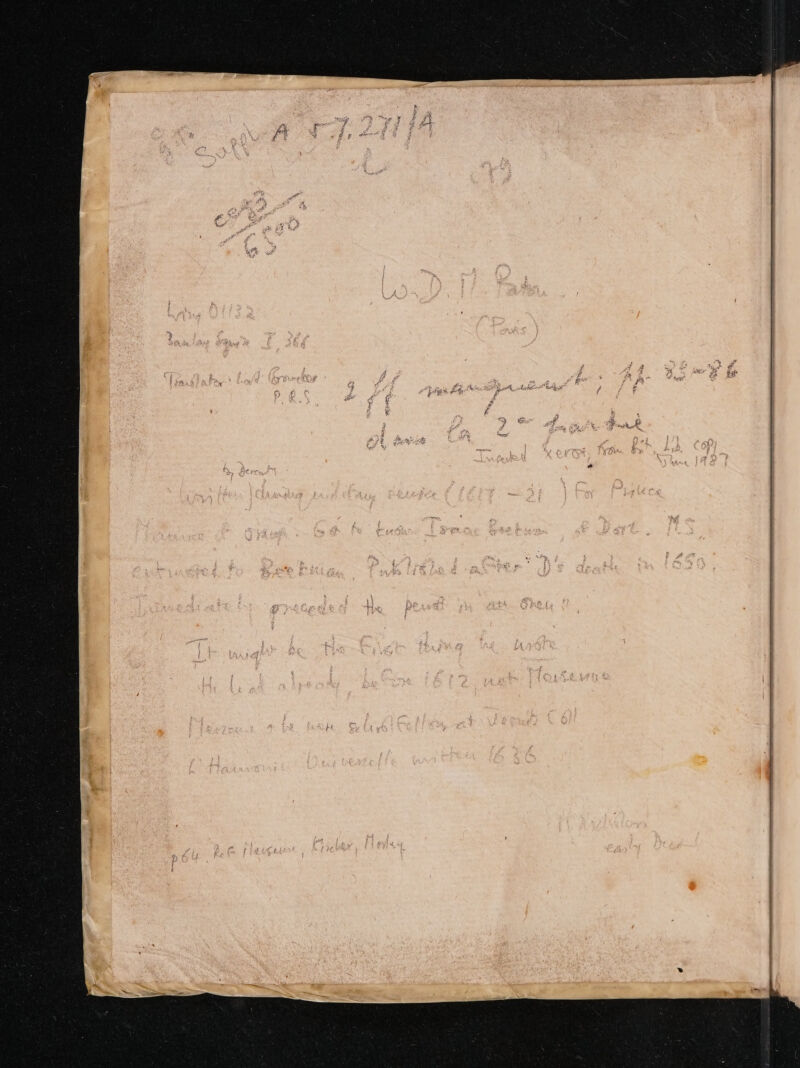 Suppl A 57.271/A
L
79
6500
W.D.M. Paton
(Paris)
Wing D1132
Barclay Squire I, 366
Translator: Lord Brouncker
P.R.S.
2 ff manquent; pp. 83-86
dans la 2e partie
Inserted xerox, from Brit. Lib. copy
June 1987
by Descartes
Written during military service (1617-21) for Prince
Maurice of Orange. Got to know Isaac Beekman, of Dort. MS.
entrusted to Beekman. Published after D's death in 1650.
Immediately preceded the period 'in an oven'.
It might be the first thing he wrote
He had already, before 1612, met Mersenne
Mersenne & he were schoolfellows at Jesuits Coll
L'Harmonie Universelle written 1636
p64. Ref Mersenne, Kircher, Morley
early